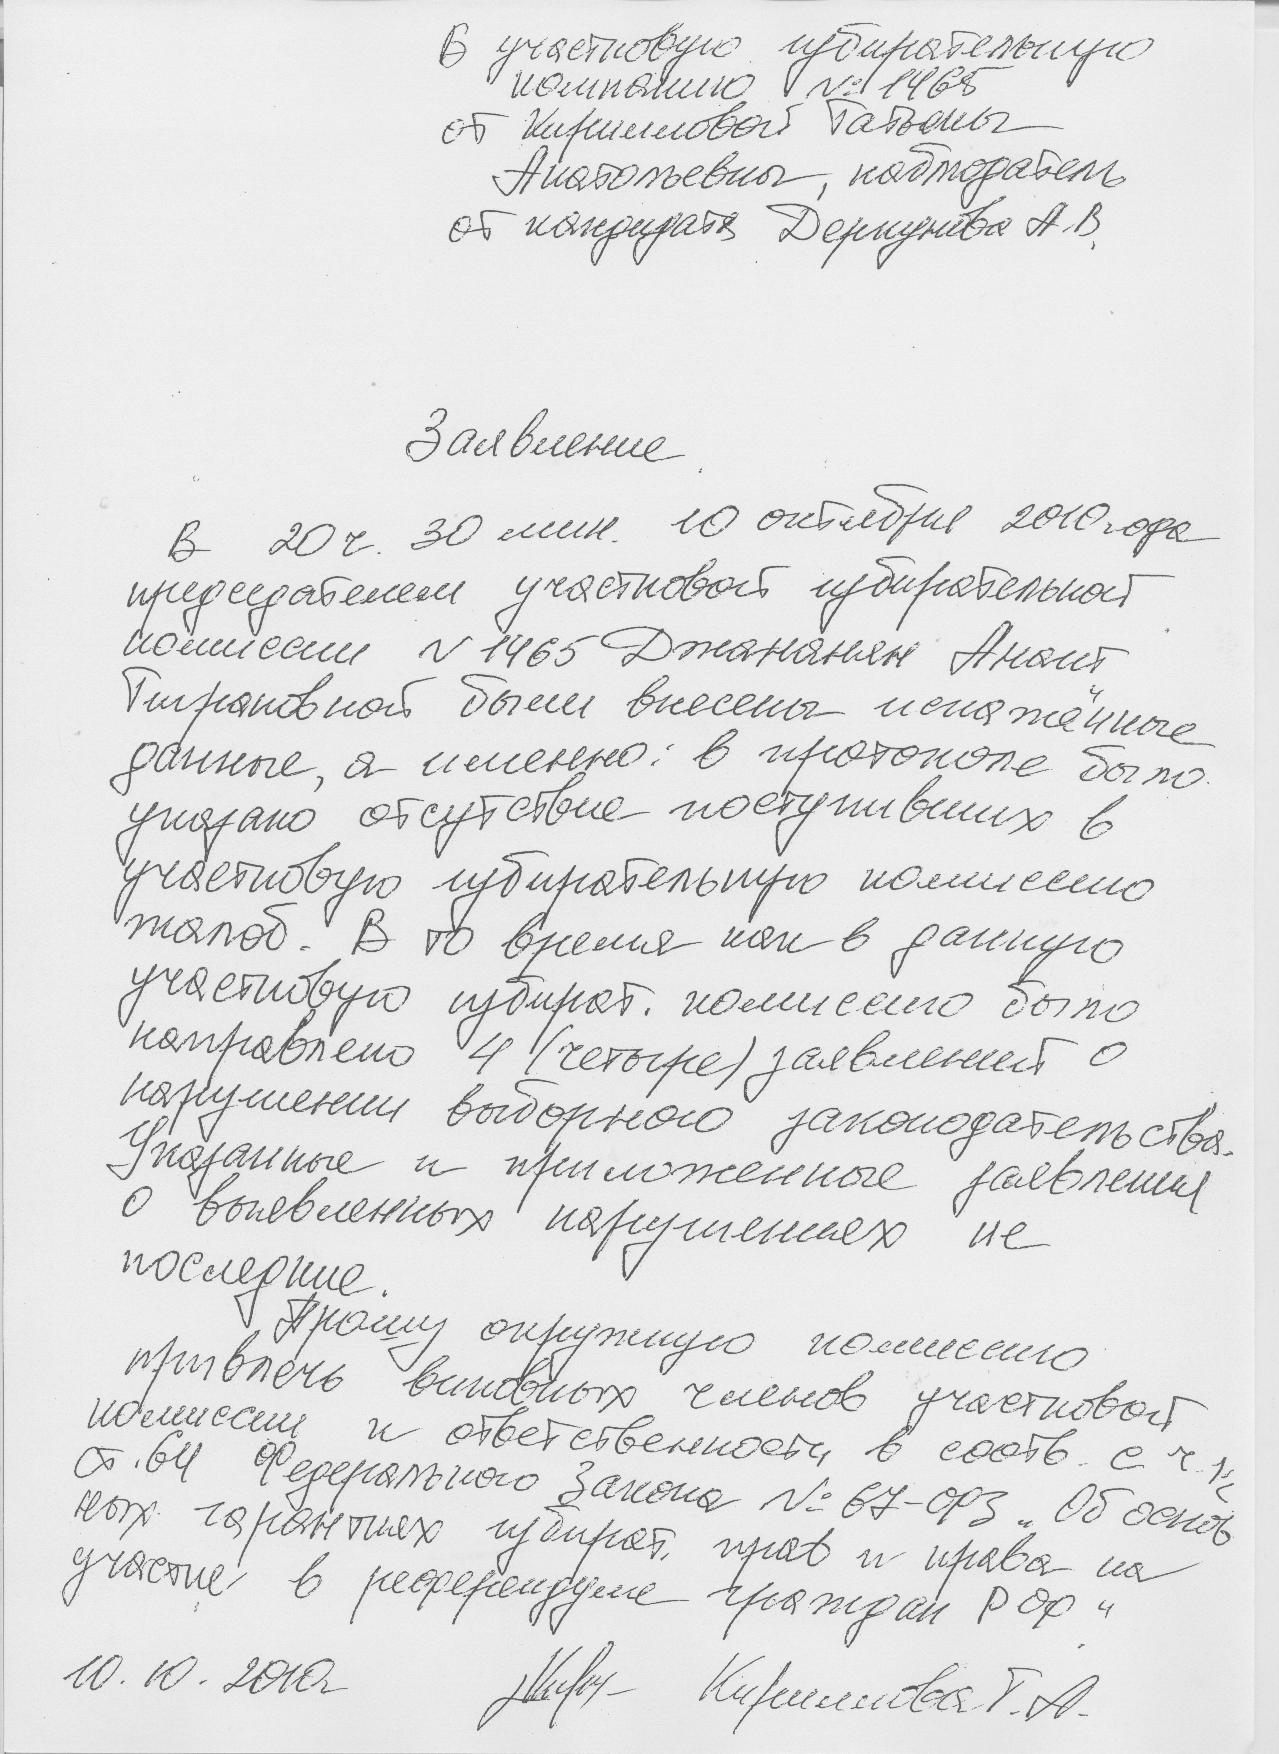 В участковую избирательную
компанию № 1465
от Кирилловой Татьяны
Анатольевны, наблюдатель
от кандидата Деркунова А.В.
Заявление
В 20 ч. 30 мин. 10 октября 2010 года
председателем участковой избирательной
комиссии N 1465 Джанакян Анаит
Тиграновной были внесены искажённые
данные, а именно: в протоколе было
указано отсутствие поступивших в
участковую избирательную комиссию
жалоб. В то время как в данную
участковую избират. комиссию было
направлено 4 (четыре) заявлений о
нарушении выборного законодательства.
Указанные и приложенные заявления
о выявленных нарушениях не
последние.
Прошу окружную комиссию
привлечь виновных членов участковой
комиссии к ответственности в соотв. с ч.
ст. 64 Федерального Закона № 67-ФЗ „Об основ
ных гарантиях избират. прав и права на
участие в референдуме граждан РФ"
10.10.2010г Кириллова Т.А.